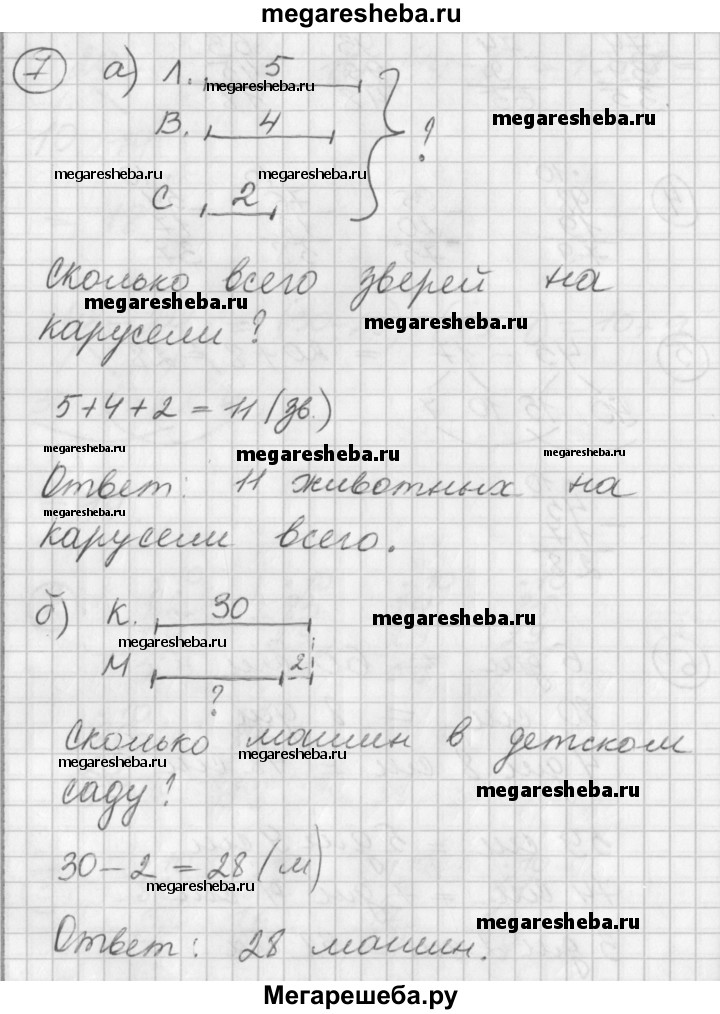 megaresheba.ru
7 а) Л. 5
megaresheba.ru
В. 4
megaresheba.ru
?
megaresheba.ru
megaresheba.ru
С 2
Сколько всего зверей на
megaresheba.ru
карусели?
megaresheba.ru
5+4+2=11(зв.)
megaresheba.ru
megaresheba.ru
megaresheba.ru
Ответ: 11 животных на
megaresheba.ru
карусели всего.
б) К. 30
megaresheba.ru
megaresheba.ru
М 2
?
Сколько машин в детском
megaresheba.ru
megaresheba.ru
саду?
megaresheba.ru
30-2=28(м)
megaresheba.ru
megaresheba.ru
Ответ: 28 машин.
Мегарешеба.ру